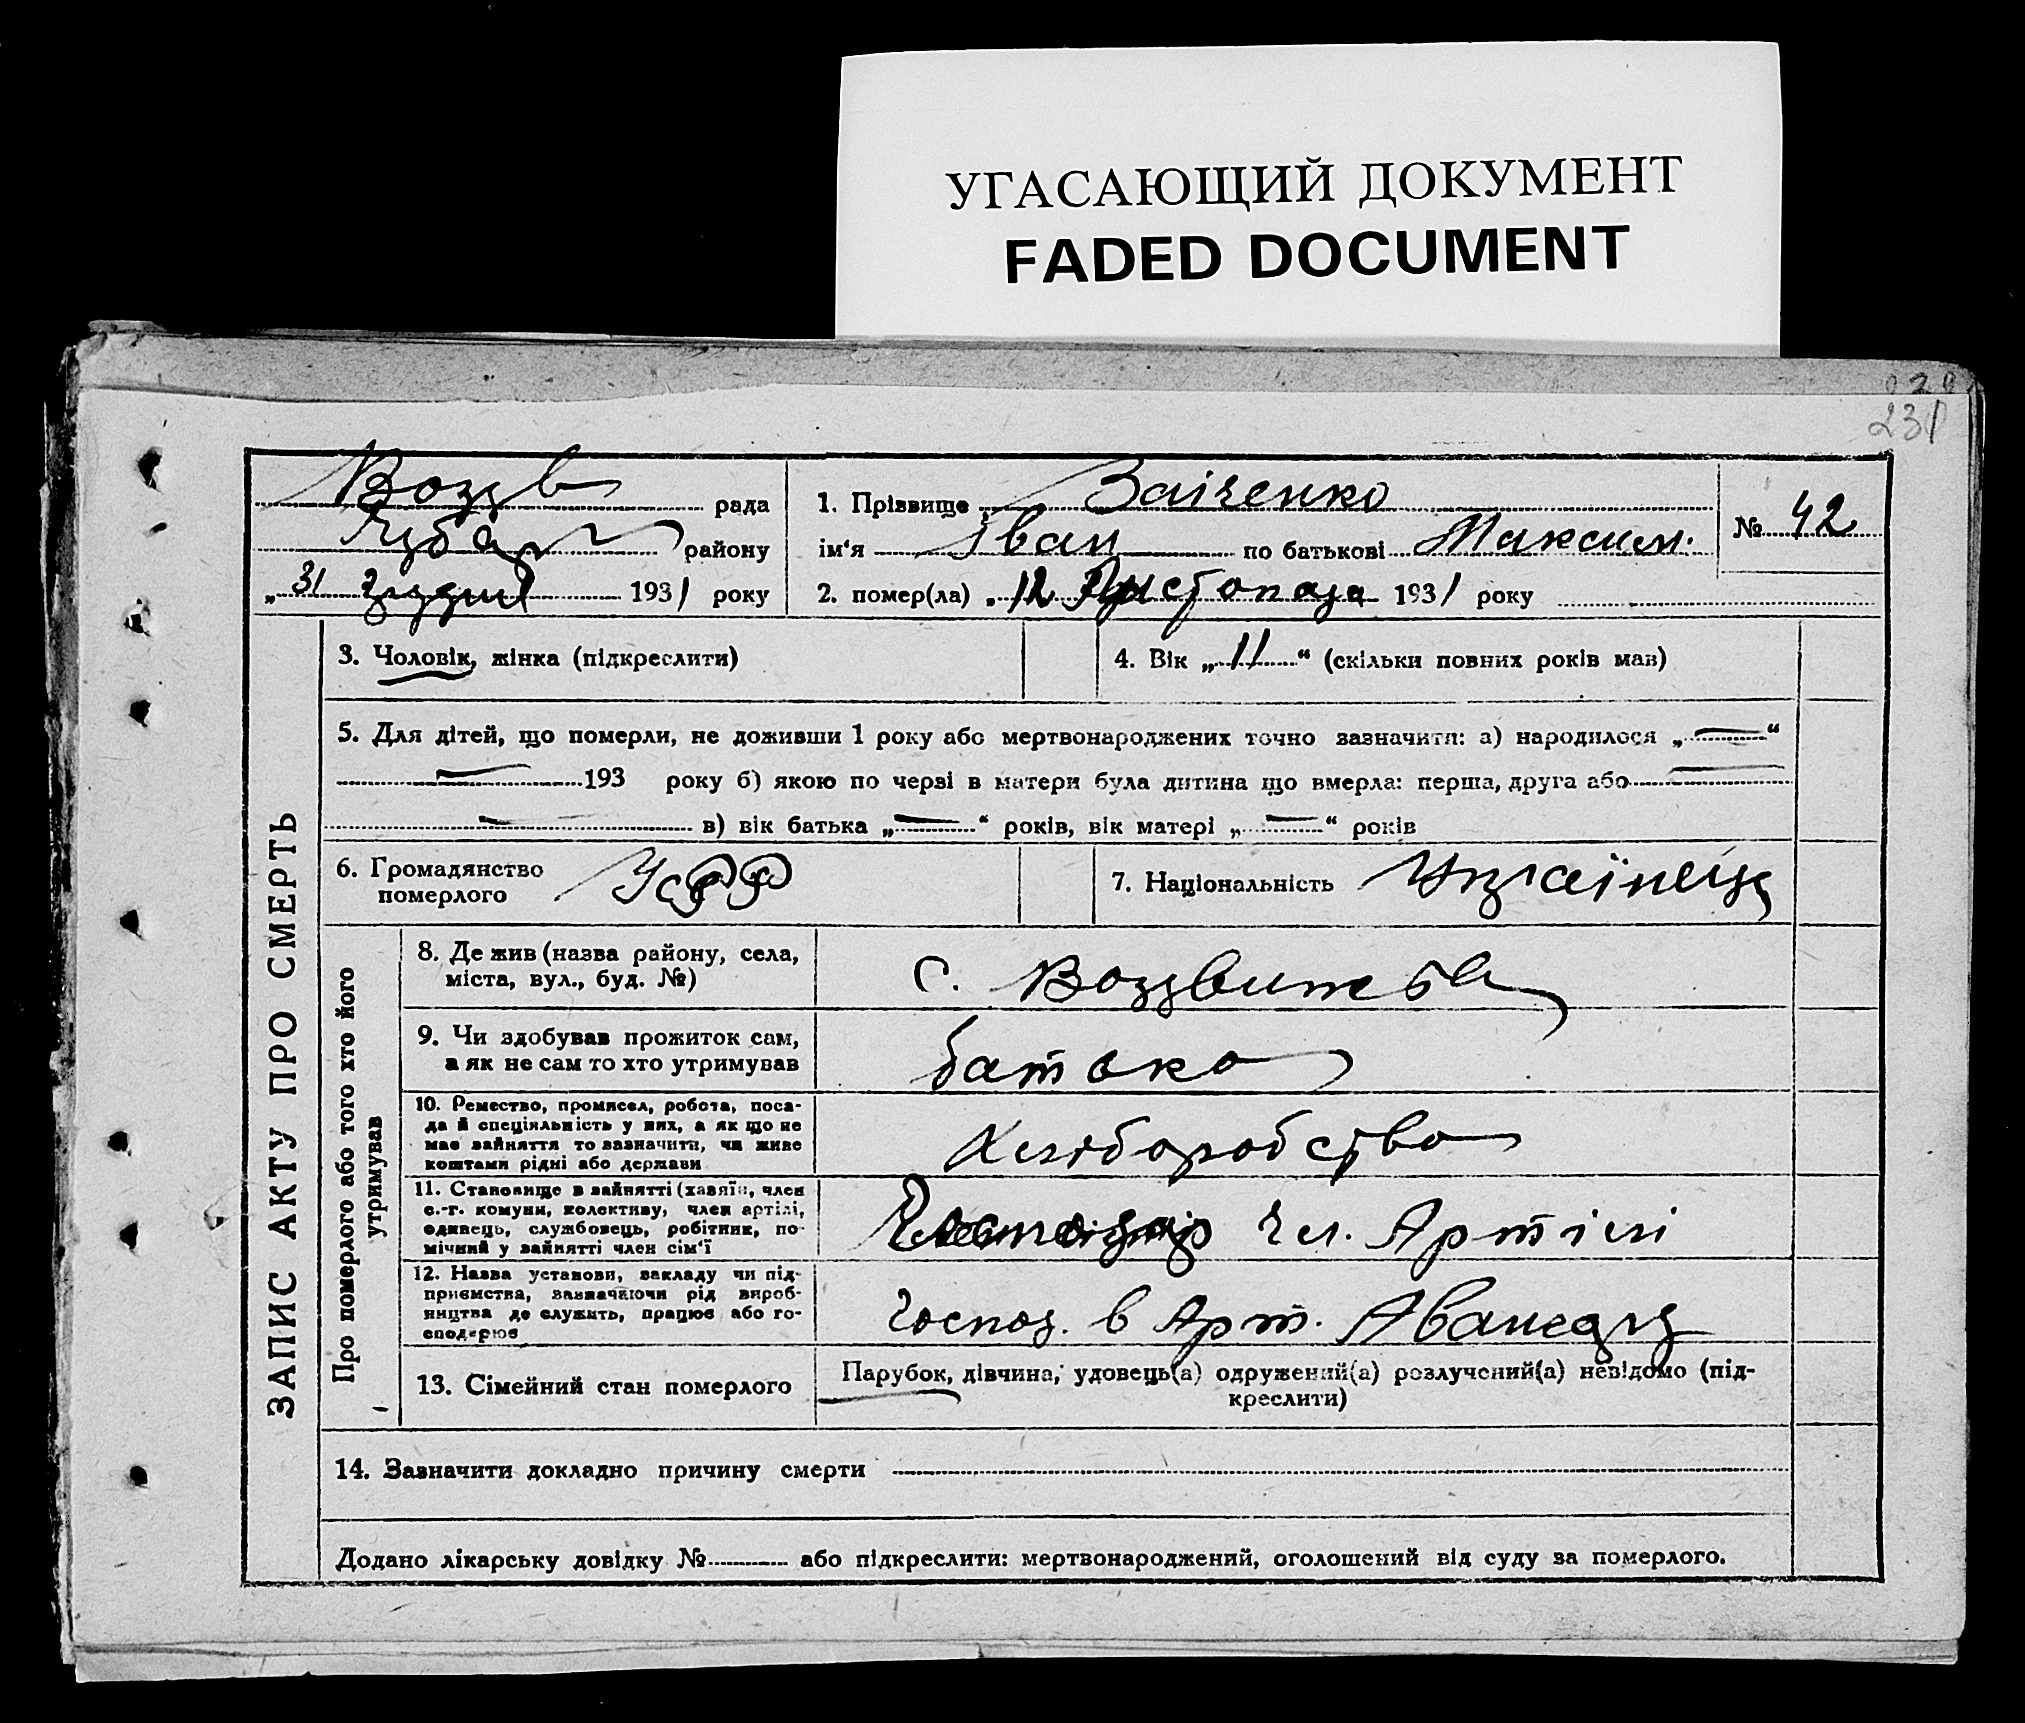 УГАСАЮЩИЙ ДОКУМЕНТ
FADED DOCUMENT
231
Воздв рада
району
„31 грудня 1931 року
1. Прізвище Заіченко
ім‘я Іван по батькові Максим.
№ 42
2. помер(ла) „12 Листопада 1931 року
ЗАПИС АКТУ ПРО СМЕРТЬ
3. Чоловік, жінка (підкреслити)
4. Вік „11“ (скільки повних років мав)
5. Для дітей, що померли, не доживши 1 року або мертвонароджених точно зазначити: а) народилося „—“
— 193 року б) якою по черзі в матери була дитина що вмерла: перша, друга або —
— в) вік батька „—“ років, вік матері „—“ років
6. Громадянство
померлого
УСРР
7. Національність Українець
Про померлого або того хто його
утримував
8. Де жив (назва району, села,
міста, вул., буд. №)
с. Воздвиженськ
9. Чи здобував прожиток сам,
а як не сам то хто утримував
батько
10. Ремество, промисел, робота, поса-
да й спеціяльність у них, а як що не
має зайняття то зазначити, чи живе
коштами рідні або держави
Хліборобство
11. Становище в зайнятті (хазяїн, член
с.-г. комуни, колективу, член артілі,
одинець, службовець, робітник, по-
мічний у зайнятті член сім‘ї
Чл. Артілі
12. Назва установи, закладу чи під-
приємства, зазначаючи рід вироб-
ництва де служить, працює або го-
сподарює
Господ. в Арт. Авангард
13. Сімейний стан померлого
Парубок, дівчина, удовець(а) одружений(а) розлучений(а) невідомо (під-
креслити)
14. Зазначити докладно причину смерти
Додано лікарську довідку № або підкреслити: мертвонароджений, оголошений від суду за померлого.